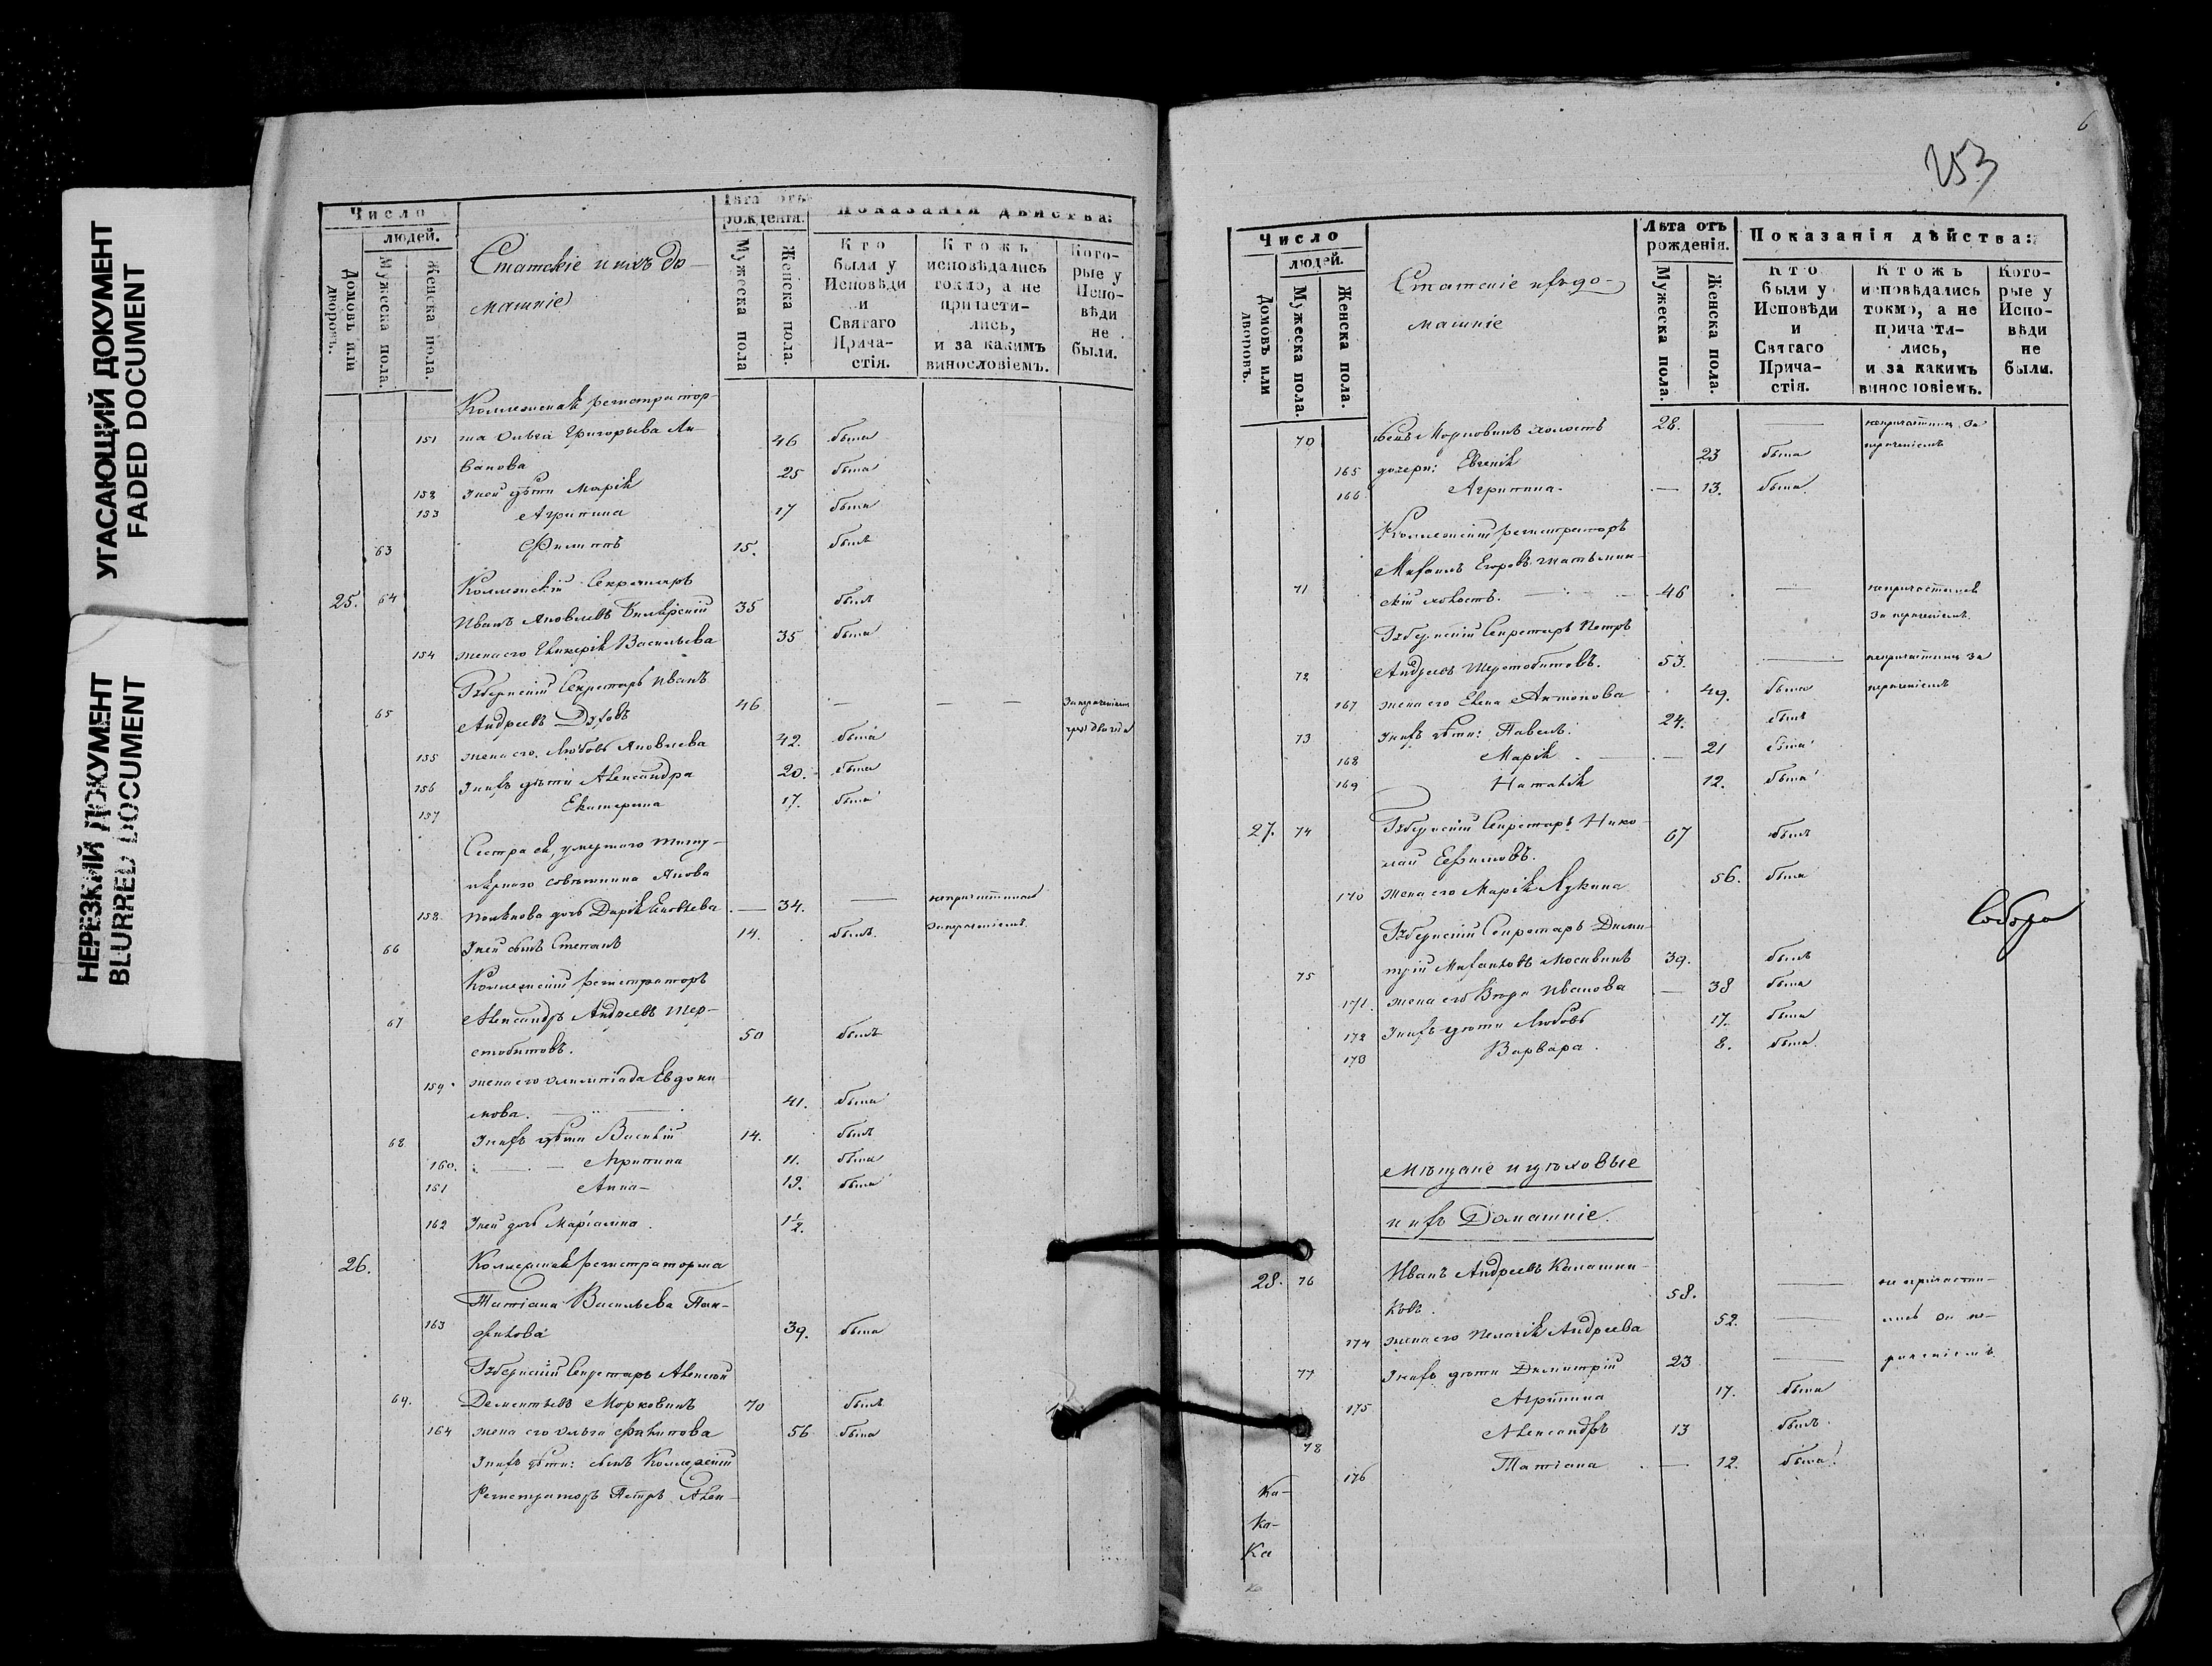 УГАСАЮЩИЙ ДОКУМЕНТ
FADED DOCUMENT
НЕРЕЗКИЙ ДОКУМЕНТ
BLURRED DOCUMENT
Число
людей.
Домовъ или дворовъ.
Мужеска пола.
Женска пола.
Статскіе и ихъ до-
машніе
Лѣта отъ рожденія.
Мужеска пола
Женска пола.
Показанія дѣйства:
Кто были у Исповѣди и Святаго Прича-стія.
Ктожъ исповѣдались токмо, а не причасти-лись, и за какимъ винословіемъ.
Кото-рые у Испо-вѣди не были.
регистратор-
151 ша Ольга Григорьева 46 была
25 была
152 У ней дѣти Марія
153 Агрипина 17 была
63 Филиппъ 15. былъ
Коллежскій Секретарь
25. 64 Иванъ Яковлевъ 35 былъ
154 жена его Гликерія Васильева 35 была
Губернскій Секретарь Иванъ
65 Андреевъ 46 — — —
155 жена его Любовь Яковлева 42. была
156 У нихъ дѣти Александра 20. была
157 Екатерина 17. была
Сестра ея, умершаго титу-
лярнаго совѣтника Якова
158 дочь Дарія Яковлева — 34. —
66 У ней сынъ Степанъ 14. былъ.
Коллежскій регистраторъ
67 Александръ Андреевъ Шер-
стобитовъ. 50 былъ
159. жена его Олимпіада Евдоки-
мова. 41. была
68 У нихъ дѣти Василій 14. былъ
160. Агрипина 11. была
161 Анна 19. была
162 У ней дочь Маріамна. 1½.
26. Коллежская регистраторша
Татіана Васильева Пан-
163 филова 39. была
Губернскій Секретарь Алексѣй
69. Дементьевъ Морковинъ 70 былъ
164 жена его Ольга Филипова 56 была
У нихъ дѣти: сынъ Коллежскій
Регистраторъ Петръ Алек-
6
253
Число
людей.
Домовъ или дворовъ.
Мужеска пола.
Женска пола.
Статскіе и ихъ до-
машніе
Лѣта отъ рожденія.
Мужеска пола.
Женска пола.
Показанія дѣйства:
Кто были у Исповѣди и Святаго Прича-стія.
Ктожъ исповѣдались токмо, а не причасти-лись, и за какимъ винословіемъ.
Кото-рые у Испо-вѣди не были.
70 Морковинъ холостъ 28. —
165 дочери: Евгенія 23 была
166 Агрипина. — 13. была
Коллежскій регистраторъ
Михаилъ Егоровъ
71 скій холостъ. 46 —
Губернскій Секретарь Петръ
72 Андреевъ Шерстобитовъ. 53. —
167 жена его Елена Антонова 49. была
73 У нихъ дѣти: Павелъ. 24. былъ
168 Марія — 21 была
169 Наталія 12. была
27. 74 Губернскій Секретарь Нико-
лай Ефимовъ. 67 былъ
170 жена его Марія Лукина 56. была
Губернскій Секретарь Дими-
75 трій Михаиловъ Москвинъ 39. былъ
171. жена его Вѣра Иванова — 38 была
172 У нихъ дѣти Любовь 17. была
173 Варвара. 8. была.
Соборо
Мѣщане и цѣховые
и ихъ Домашніе.
28. 76 Иванъ Андреевъ Калашни-
ковъ. 58. — не причасти-
174 жена его Пелагія Андреева 52. —
77 У нихъ дѣти Димитрій 23 —
175 Агрипина 17. была
78 Александръ 13 былъ
176 Татіана. — 12. была
Ка-
Ка-
Ка